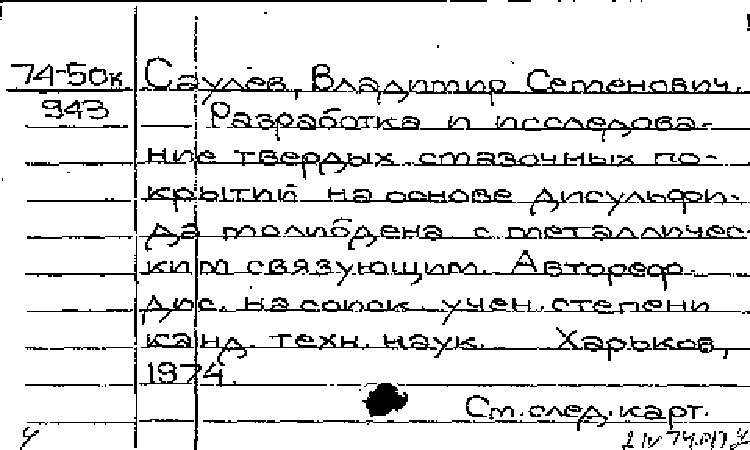 74-50к Саулев, Владимир Семенович.
943 Разработка и исследова-
ние твердых смазочных по-
крытий на основе дисульфи-
да молибдена с металличес-
ким связующим. Автореф.
дис. на соиск. учен. степени
канд. техн. наук. Харьков,
1974.
См. след. карт.